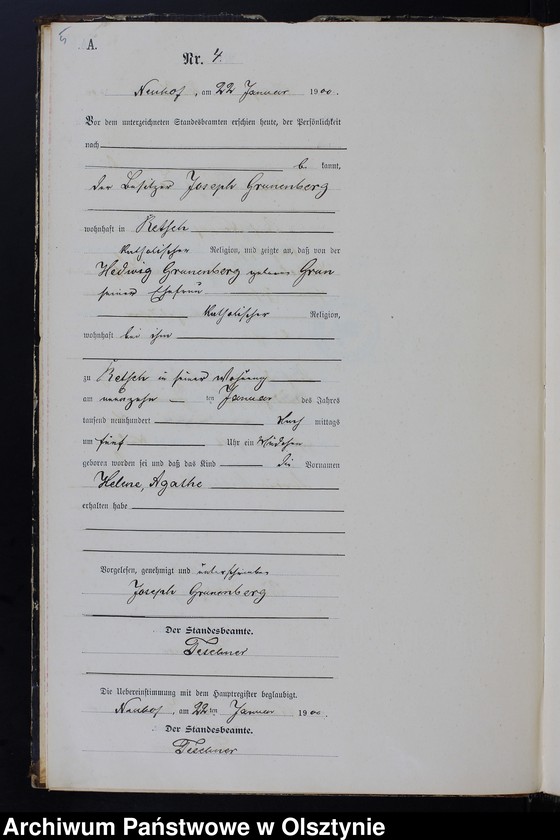 A.
Nr. 4
Neuhof, am 22 Januar 1900.
Vor dem unterzeichneten Standesbeamten erschien heute, der Persönlichkeit
nach
be kannt,
der Besitzer Joseph Grunenberg
wohnhaft in Retsch
katholischer Religion, und zeigte an, daß von der
Hedwig Grunenberg geborene
seiner Ehefrau
katholischer Religion,
wohnhaft bei ihm
zu Retsch in seiner Wohnung
am neunzehn ten Januar des Jahres
tausend neunhundert Nach mittags
um fünf Uhr ein Mädchen
geboren worden sei und daß das Kind die Vornamen
Helene, Agathe
erhalten habe
Vorgelesen, genehmigt und unterschrieben
Joseph Grunenberg
Der Standesbeamte.
Teschner
Die Uebereinstimmung mit dem Hauptregister beglaubigt.
Neuhof, am 22ten Januar 1900.
Der Standesbeamte.
Teschner
Archiwum Państwowe w Olsztynie